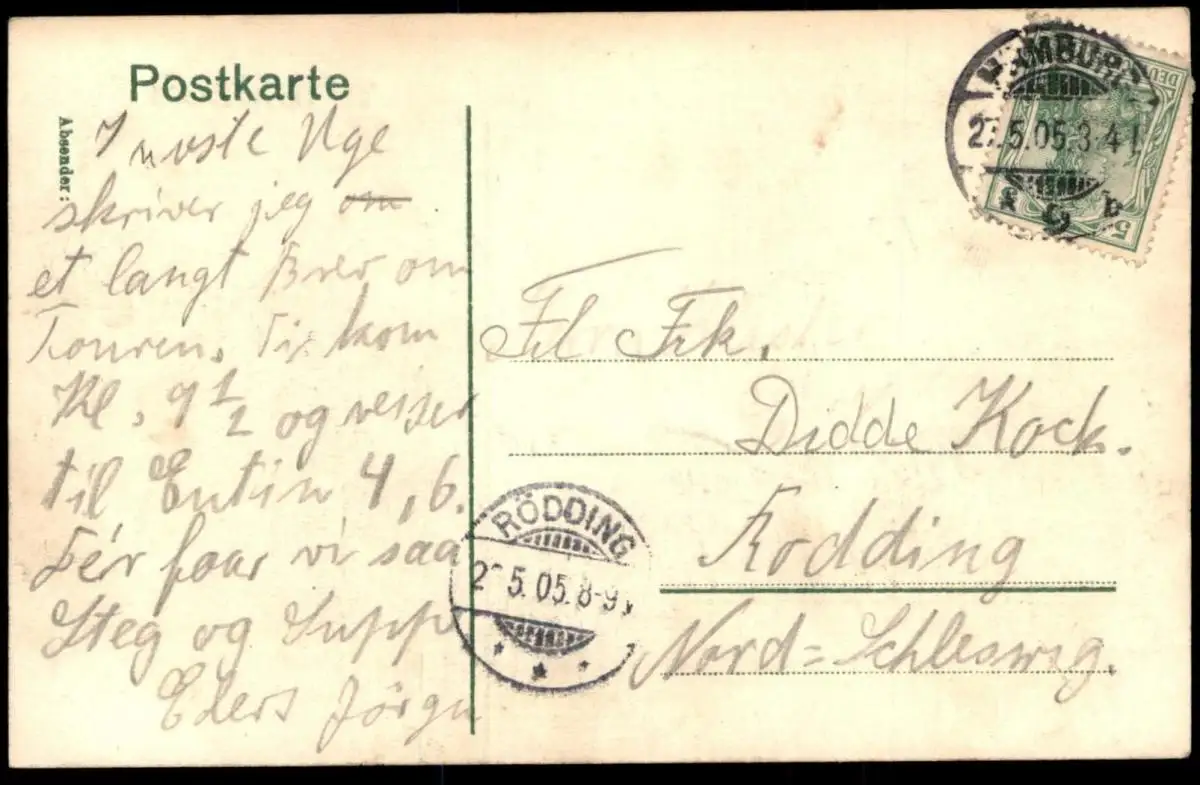 Postkarte
Absender:
I næste Uge
skriver jeg om
et langt Brev om
Touren. Vi kom
Kl. 9 1/2 og reiser
til Eutin 4,6.
Der faar vi saa
Steg og Suppe
Eders Jörgen
HAMBURG
5.05.3-4
* 9 b
5
RÖDDING
5.05.8-9
Frl Frk.
Didde Kock.
Rödding
Nord=Schleswig.